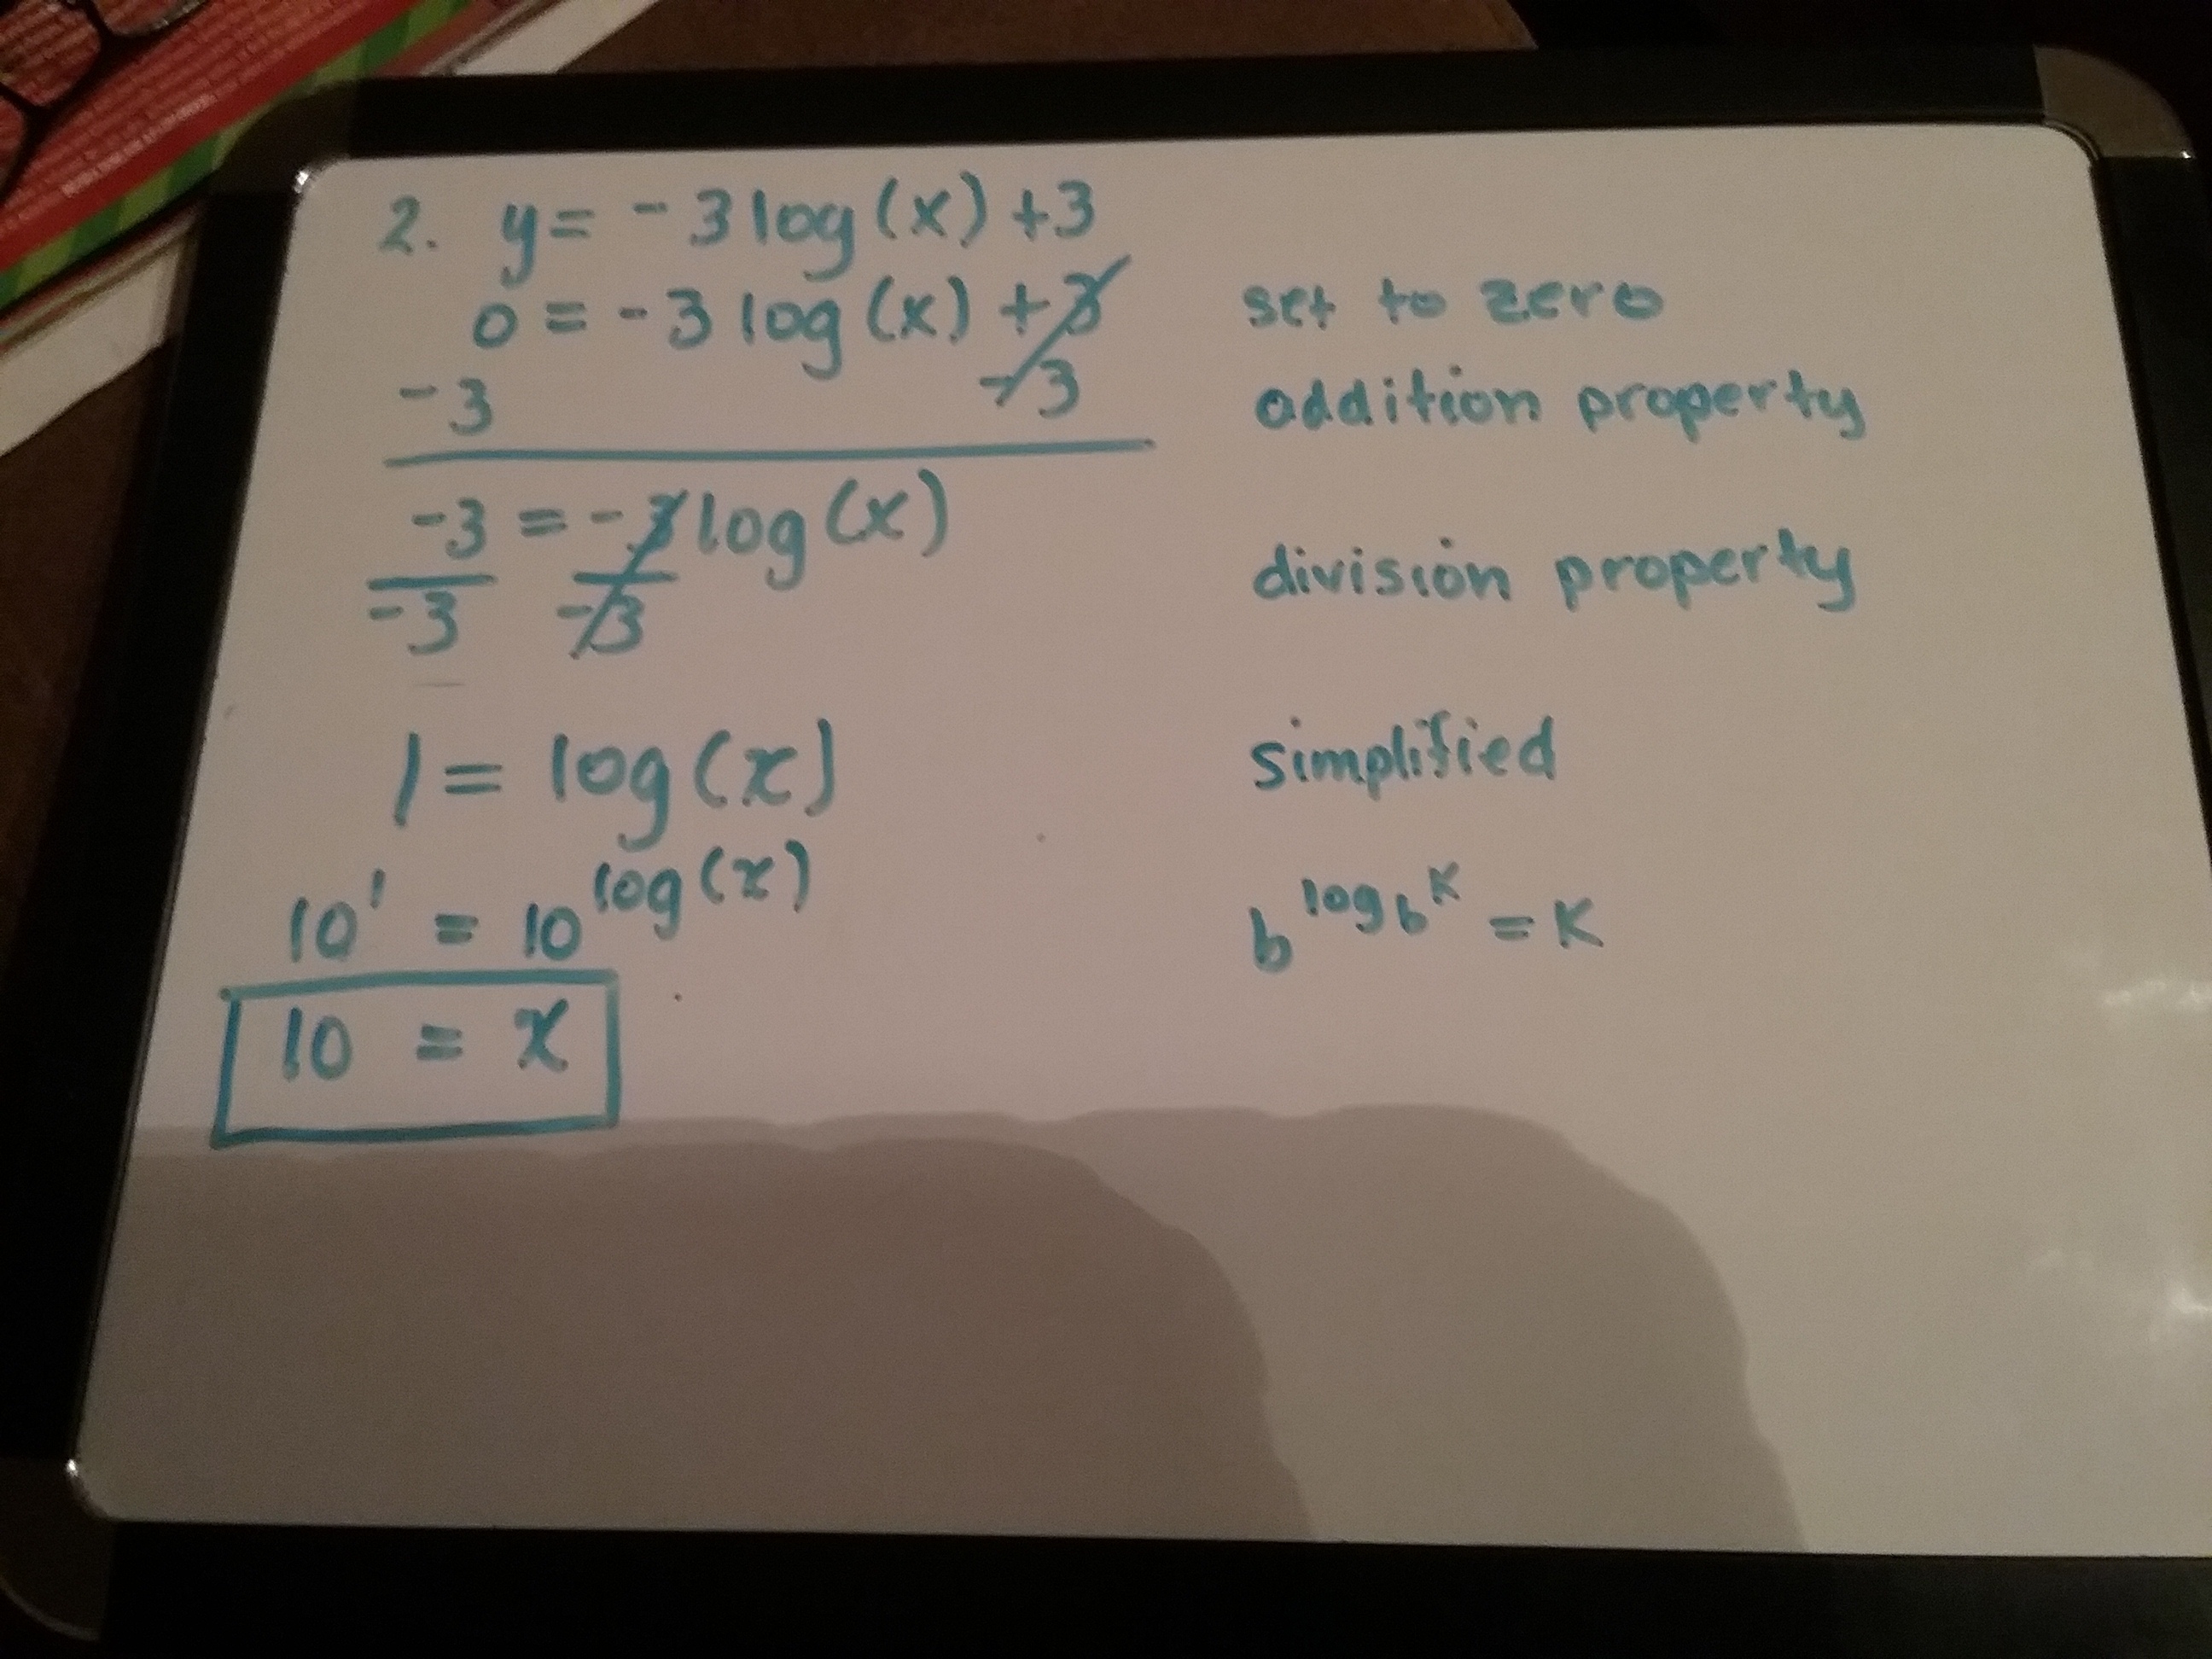 2. y = -3 log (x) +3
0 = -3 log (x) +3 set to zero
-3 -3 addition property
-3 = -3 log (x)
-3 -3 division property
1 = log (x) simplified
10¹ = 10^log (x) b^log_b^K = K
10 = x